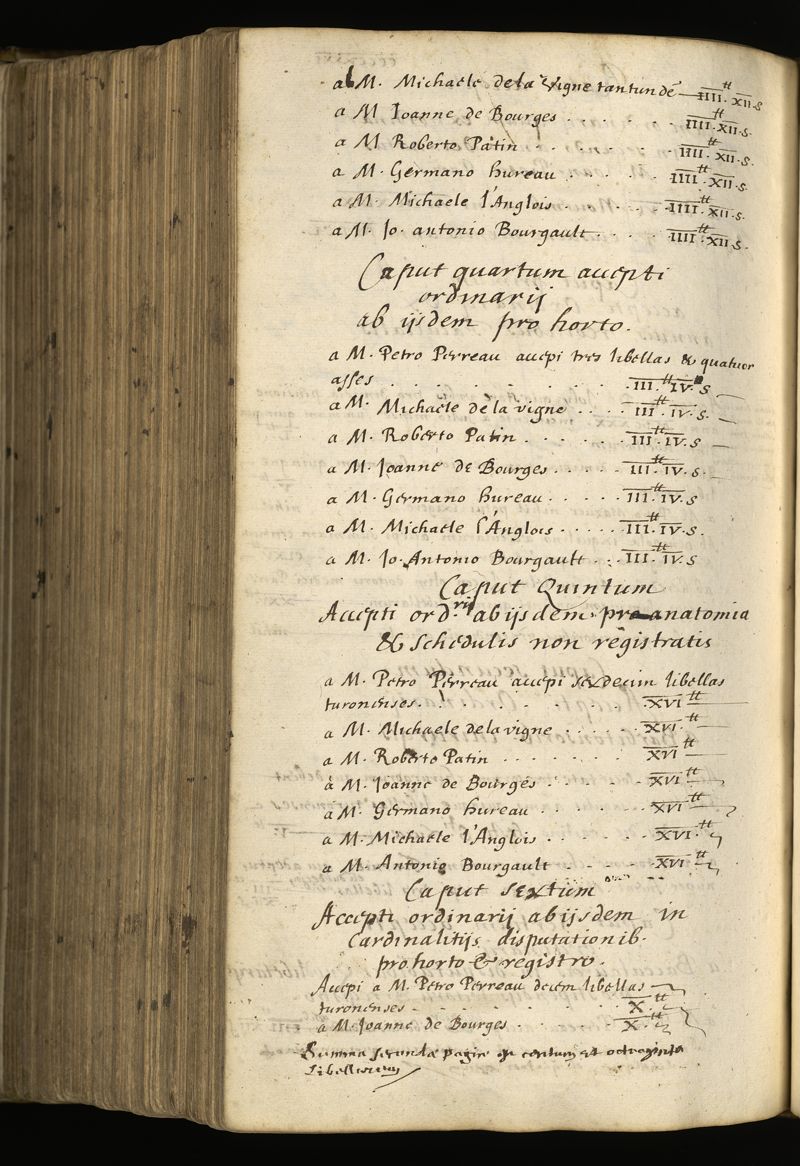 ab M. Michaele de la Vigne tantundē IIII.tt XII.s
a M Joanne de Bourges . . . . . . IIII.tt XII.s.
a M Roberto Patin . . . . . . IIII.tt XII.s.
a M. Germano hureau . . . . . IIII.tt XII.s
a M. Michaele l'Anglois . . . . . IIII.tt XII.s.
a M. Jo. antonio Bourgault . . . . IIII.tt XII.s.
Caput quartum accepti
ordinarij
ab ijsdem pro horto.
a M. Petro Perreau accepi tres libellas & quatuor
asses . . . . . . . . . III.tt IV.s
a M. Michaële de la vigne . . . . III.tt IV.s.
a M. Roberto Patin . . . . . . III.tt IV.s
a M. Joanne de Bourges . . . . . III.tt IV.s.
a M. Germano hureau . . . . . III.tt IV.s
a M. Michaele l'Anglois . . . . . III.tt IV.s.
a M. Jo. Antonio Bourgault . . . III.tt IV.s
Caput Quintum
Accepti ord.rij ab ijsdem pro anatomia
& schedulis non registratis
a M. Petro Perreau accepi sexdecim libellas
turonenses . . . . . . . . XVI tt
a M. Michaele de la vigne . . . . . XVI. tt
a M. Roberto Patin . . . . . . XVI tt
a M. Joanne de Bourges . . . . . XVI tt
a M. Germano hureau . . . . . XVI tt
a M. Michaele l'Anglois . . . . . XVI. tt
a M. Antonio Bourgault . . . . XVI tt
Caput sextum
Accepti ordinarij ab ijsdem in
Cardinalitijs disputationib.
pro horto & registro.
Accepi a M. Petro Perreau decem libellas
turonenses . . . . . . . X tt
a M. Joanne de Bourges . . . . . X. tt
Summa secundæ paginæ centum et octoginta
libellarum